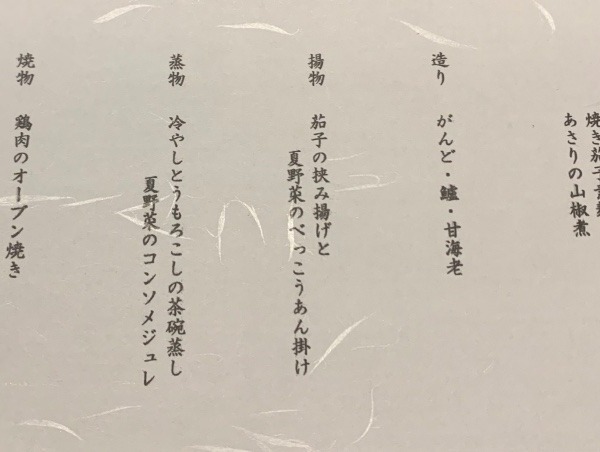 焼き茄子素麺
あさりの山椒煮
造り がんど・鱸・甘海老
揚物 茄子の挟み揚げと
夏野菜のべっこうあん掛け
蒸物 冷やしとうもろこしの茶碗蒸し
夏野菜のコンソメジュレ
焼物 鶏肉のオーブン焼き